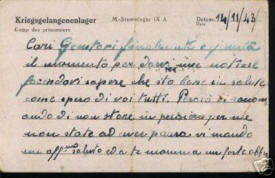 Kriegsgefangenenlager M.-Stammlager IX A Datum: 14/11/43
Camp des prisonniers Date
Cari Genitori finalmente è giunto
il momento per darvi mie notizie
facendovi sapere che sto bene in salute
come spero di voi tutti. Perciò vi raccom
ando di non stare in pensiero per me
non state ad aver paura vi mando
un aff. saluto ed a te mamma un forte